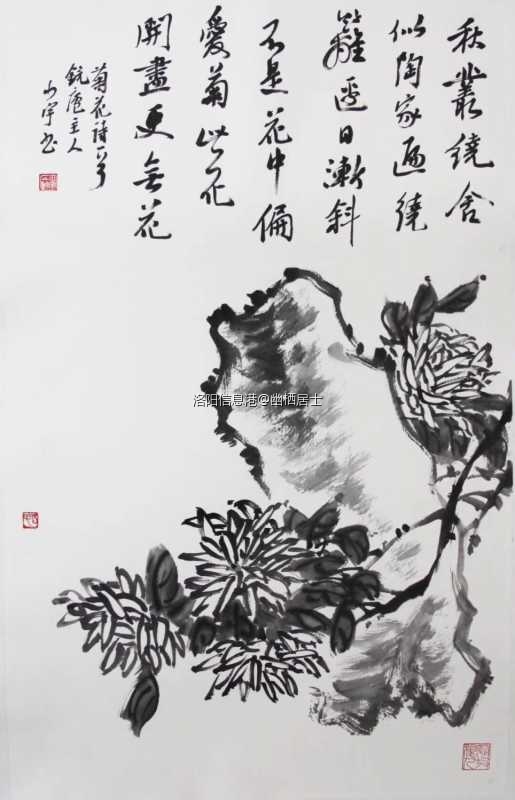 秋叢繞舍
似陶家遍繞
籬邊日漸斜
不是花中偏
愛菊此花
開盡更無花
菊花詩一首
庵主人
少宇書
洛阳信息港@幽栖居士